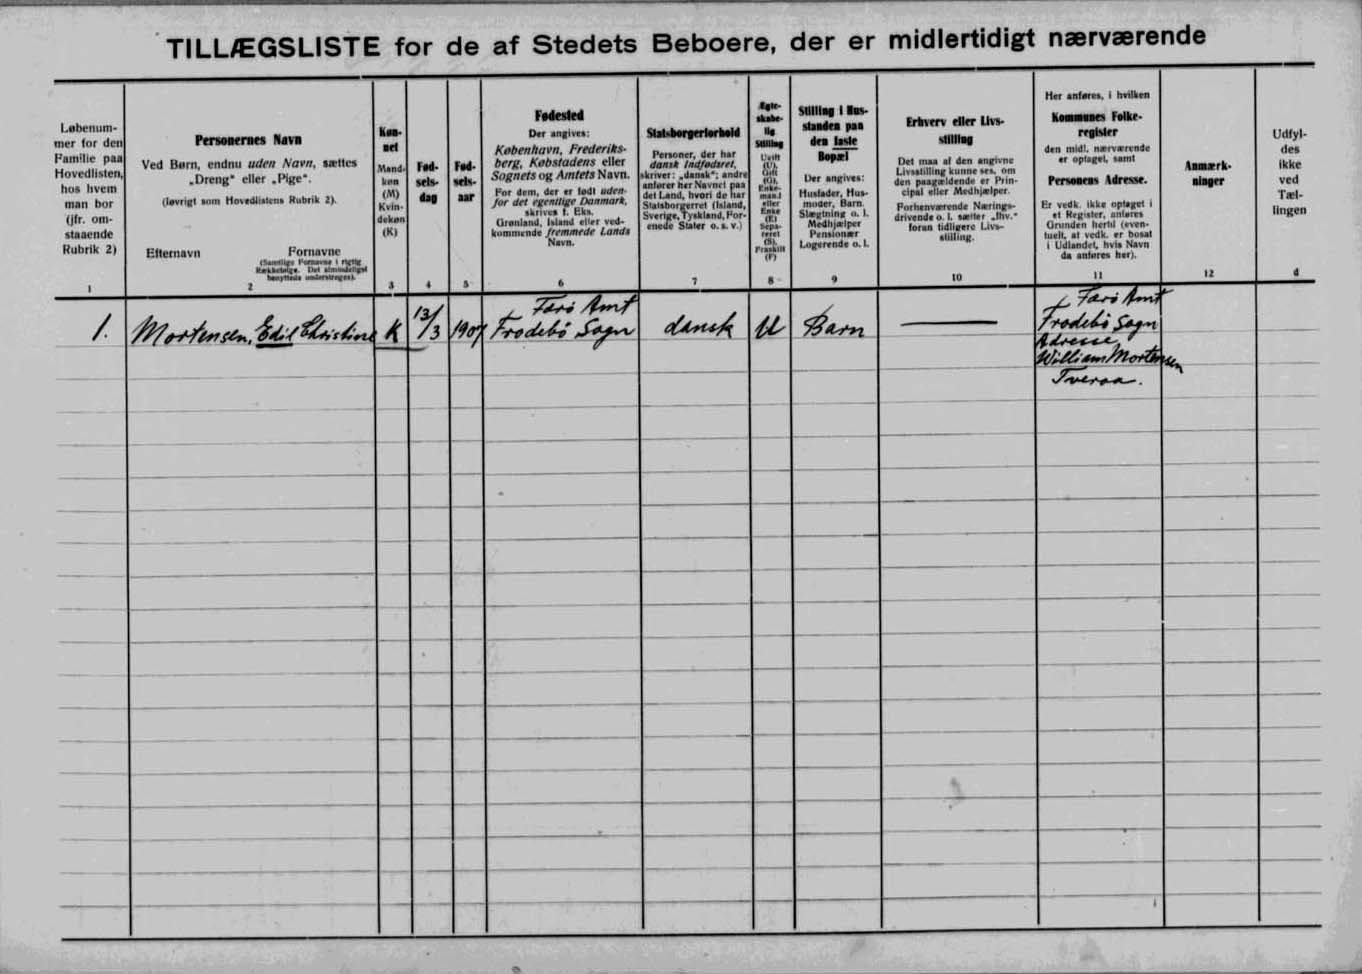 TILLÆGSLISTE for de af Stedets Beboere, der er midlertidigt nærværende
Løbenum-
mer for den
Familie paa
Hovedlisten,
hos hvem
man bor
(jfr. om-
staaende
Rubrik 2)
1
Personernes Navn
Ved Børn, endnu uden Navn, sættes
„Dreng“ eller „Pige“.
(Iøvrigt som Hovedlistens Rubrik 2).
Efternavn
Fornavne
(Samtlige Fornavne i rigtig
Rækkefølge. Det almindeligst
benyttede understreges).
2
Køn-
net
Mand-
køn
(M)
Kvin-
dekøn
(K)
3
Fød-
sels-
dag
4
Fød-
sels-
aar
5
Fødested
Der angives:
København, Frederiks-
berg, Købstadens eller
Sognets og Amtets Navn.
For dem, der er født uden-
for det egentlige Danmark,
skrives f. Eks.
Grønland, Island eller ved-
kommende fremmede Lands
Navn.
6
Statsborgerforhold
Personer, der har
dansk Indfødsret,
skriver: „dansk“; andre
anfører her Navnet paa
det Land, hvori de har
Statsborgerret (Island,
Sverige, Tyskland, For-
enede Stater o. s. v.)
7
Ægte-
skabe-
lig
Stilling
Ugift
(U),
Gift
(G),
Enke-
mand
eller
Enke
(E)
Sepa-
reret
(S),
Fraskilt
(F)
8
Stilling i Hus-
standen paa
den faste
Bopæl
Der angives:
Husfader, Hus-
moder, Barn.
Slægtning o. l.
Medhjælper
Pensionær
Logerende o. l.
9
Erhverv eller Livs-
stilling
Det maa af den angivne
Livsstilling kunne ses, om
den paagældende er Prin-
cipal eller Medhjælper.
Forhenværende Nærings-
drivende o. l. sætter „fhv.“
foran tidligere Livs-
stilling.
10
Her anføres, i hvilken
Kommunes Folke-
register
den midl. nærværende
er optaget, samt
Personens Adresse.
Er vedk. ikke optaget i
et Register, anføres
Grunden hertil (even-
tuelt, at vedk. er bosat
i Udlandet, hvis Navn
da anføres her).
11
Anmærk-
ninger
12
Udfyl-
des
ikke
ved
Tæl-
lingen
d
1.
Mortensen, Edil Christine
K
13/3
1907
Færö Amt
Frodebö Sogn
dansk
U
Barn
Færö Amt
Frodebö Sogn
Adresse
William Mortensen
Tveraa.